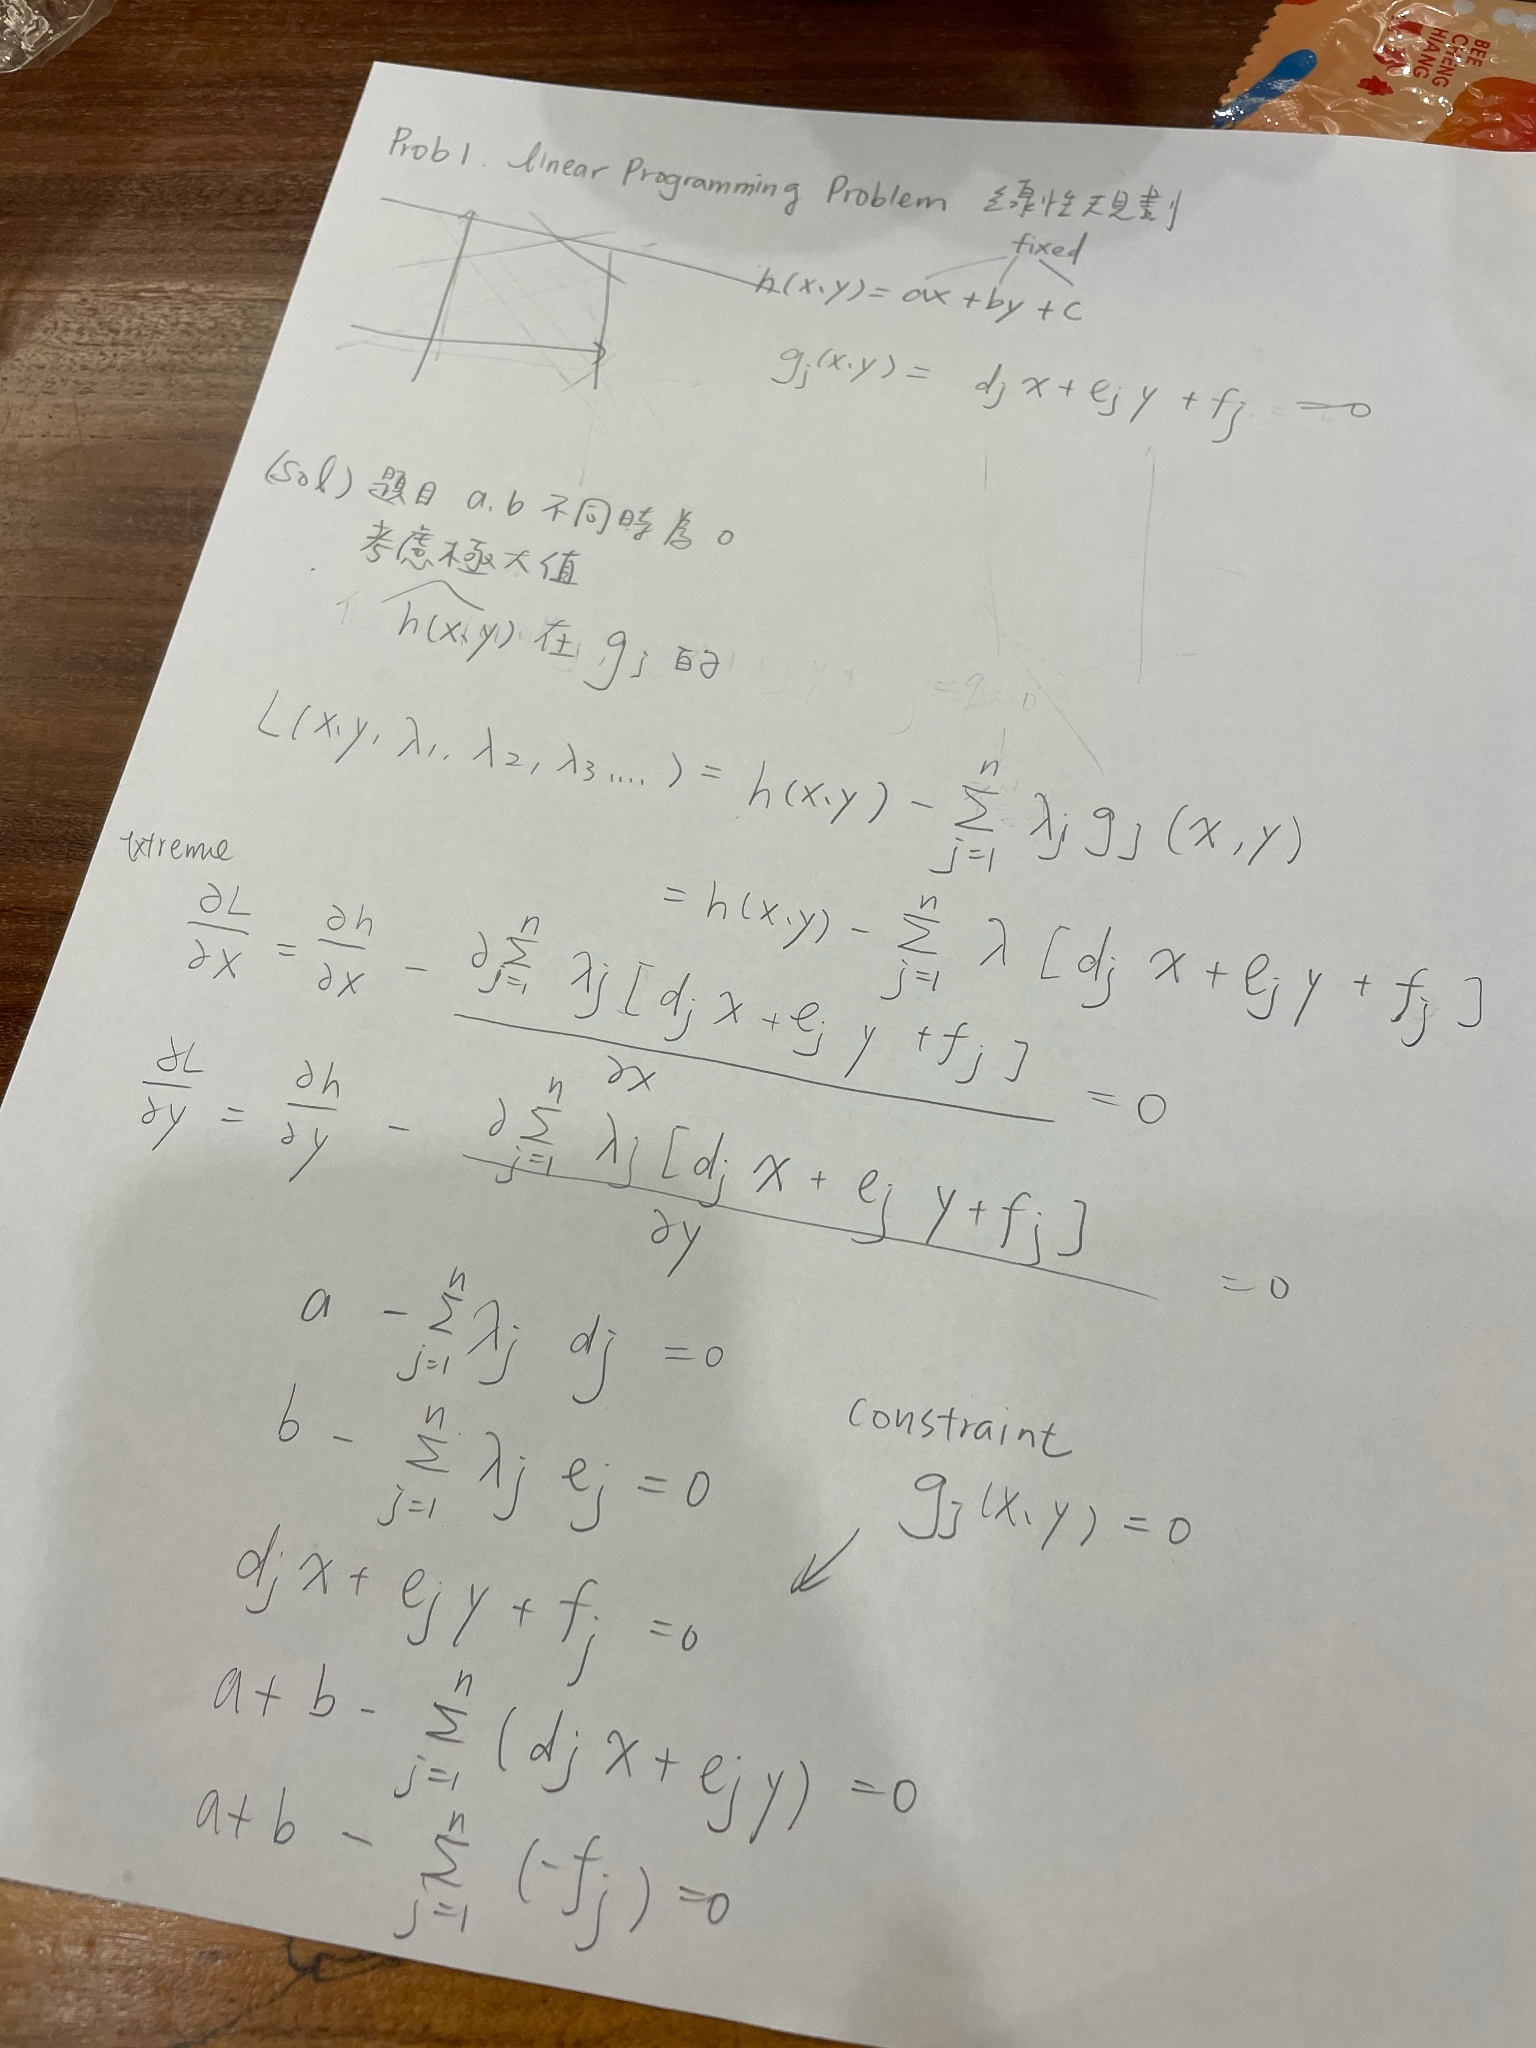 BEE CHENG HIANG
Prob 1. linear Programming Problem 線性規劃
fixed
h(x,y) = ax + by + c
g_j(x,y) = d_j x + e_j y + f_j = 0
(Sol) 題目 a.b 不同時為0
考慮極大值
h(x,y) 在 g_j 的
L(x,y, λ_1, λ_2, λ_3....) = h(x,y) - Σ_{j=1}^{n} λ_j g_j (x,y)
= h(x,y) - Σ_{j=1}^{n} λ [d_j x + e_j y + f_j]
extreme
∂L/∂x = ∂h/∂x - ∂Σ_{j=1}^{n} λ_j [d_j x + e_j y + f_j]/∂x = 0
∂L/∂y = ∂h/∂y - ∂Σ_{j=1}^{n} λ_j [d_j x + e_j y + f_j]/∂y = 0
a - Σ_{j=1}^{n} λ_j d_j = 0
b - Σ_{j=1}^{n} λ_j e_j = 0
constraint
g_j(x,y) = 0
d_j x + e_j y + f_j = 0
a + b - Σ_{j=1}^{n} (d_j x + e_j y) = 0
a + b - Σ_{j=1}^{n} (-f_j) = 0